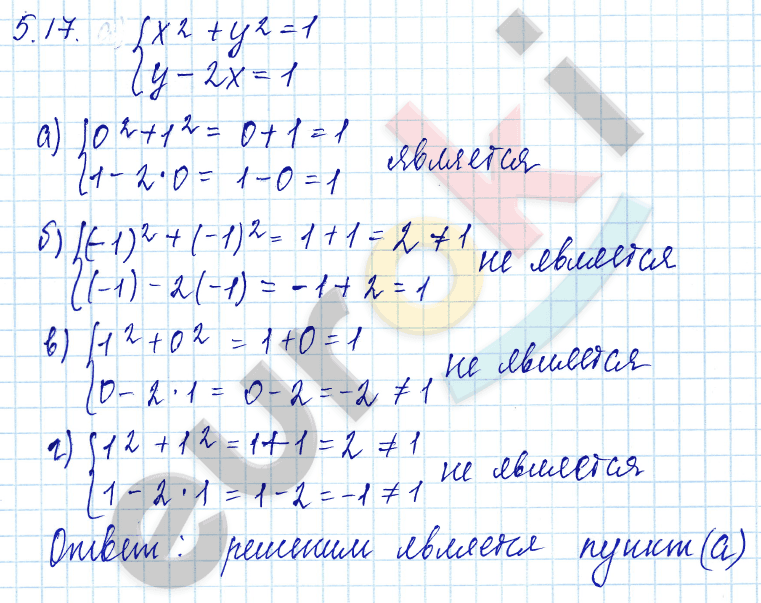 5.17. { x² + y² = 1
{ y - 2x = 1
а) { 0² + 1² = 0 + 1 = 1
{ 1 - 2·0 = 1 - 0 = 1 является
б) { (-1)² + (-1)² = 1 + 1 = 2 ≠ 1
{ (-1) - 2(-1) = -1 + 2 = 1 не является
в) { 1² + 0² = 1 + 0 = 1
{ 0 - 2·1 = 0 - 2 = -2 ≠ 1 не является
г) { 1² + 1² = 1 + 1 = 2 ≠ 1
{ 1 - 2·1 = 1 - 2 = -1 ≠ 1 не является
Ответ: решением является пункт (а)
euroki